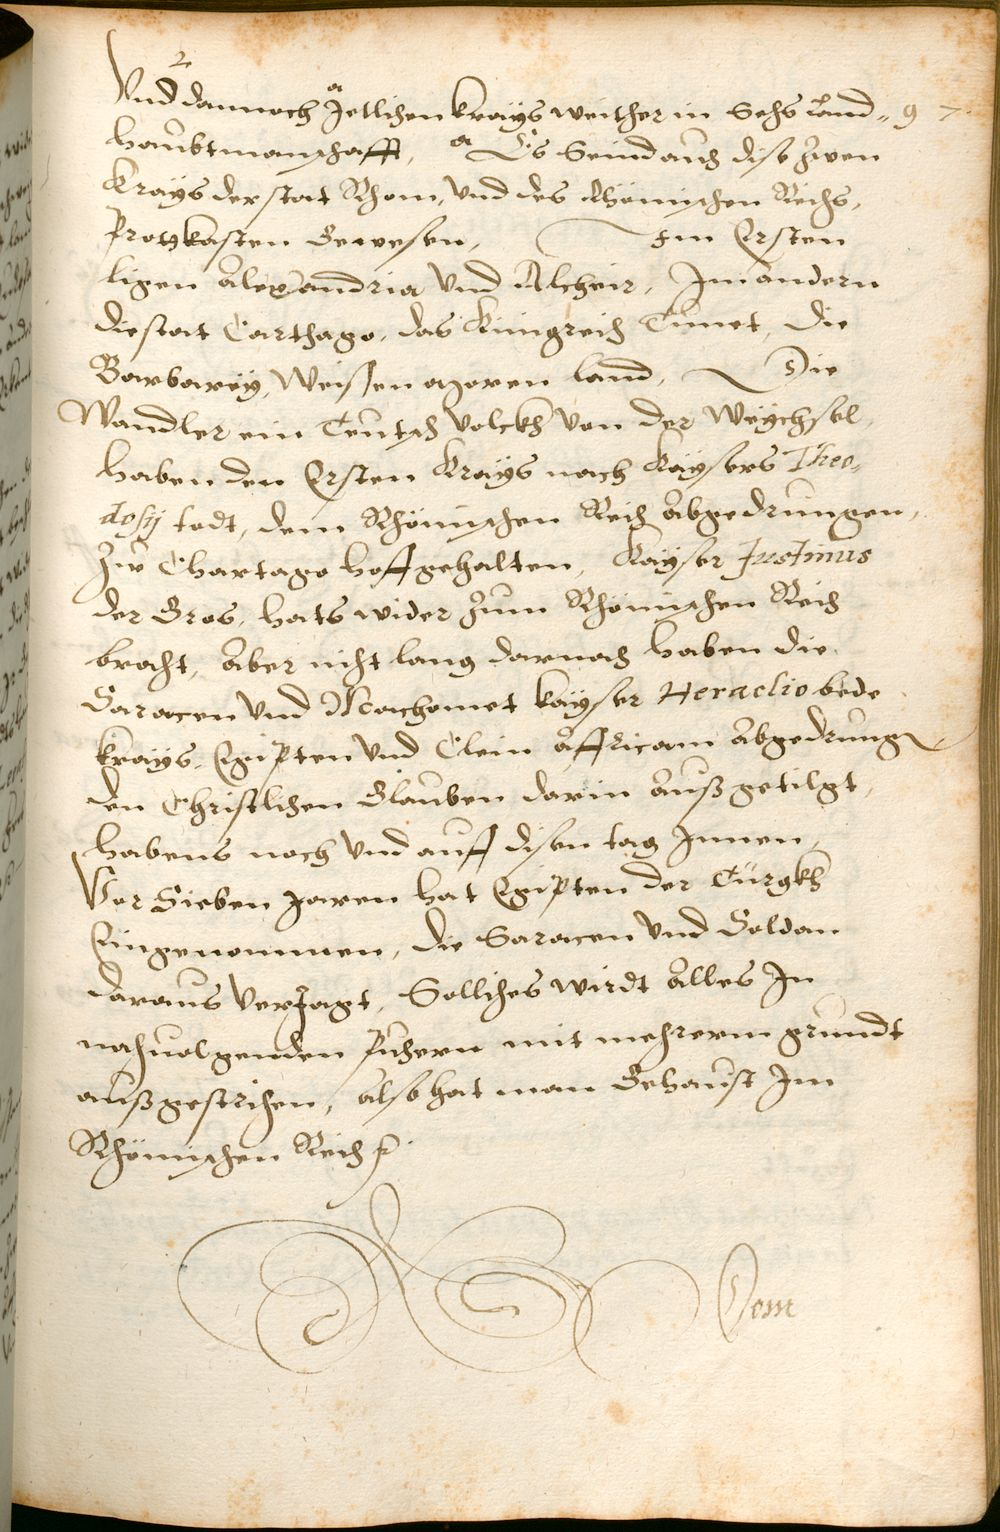 2
Vnd dannoch Jetlichen krays weither in Sechs Land- 9 7
haubtmanschafft, a Es Seind auch dise zwen
Krays der stat Rhom, Vnd des Rhömischen Reichs,
Protkasten Gewesen, Im Ersten
ligen Alexandria Vnd Alcheir, Im andern
die stat Carthago, das Künigreich Tunet, Die
Barbarey, Weissen moren land, Die
Wandler ein Teutsch Volckh von der Weychsel,
haben den Ersten Krays nach Kaysers Theo-
dosij todt, dem Rhömischen Reich abgedrungen,
Zw Chartago hoff gehalten, Kayser Justinus
der Gros, hats wider zum Rhömischen Reich
bracht, Aber nicht lang darnach haben die
Saracen Vnd Machomet kayser Heraclio bede
krays, Egipten Vnd Clein Affricam abgedrungen
den Christlichen Glauben darin Außgetilgt,
habens noch Vnd auff disen tag Jnnen,
Vor Sieben Jaren hat Egipten der Türgkh
Eingenommen, die Saracen Vnd Soldan
daraus Verjagt, Solliches wirdt alles In
nachuolgenden Püchern mit mehrerm grundt
außgestrichen, also hat man Gehaust Im
Rhömischen Reich
Vom